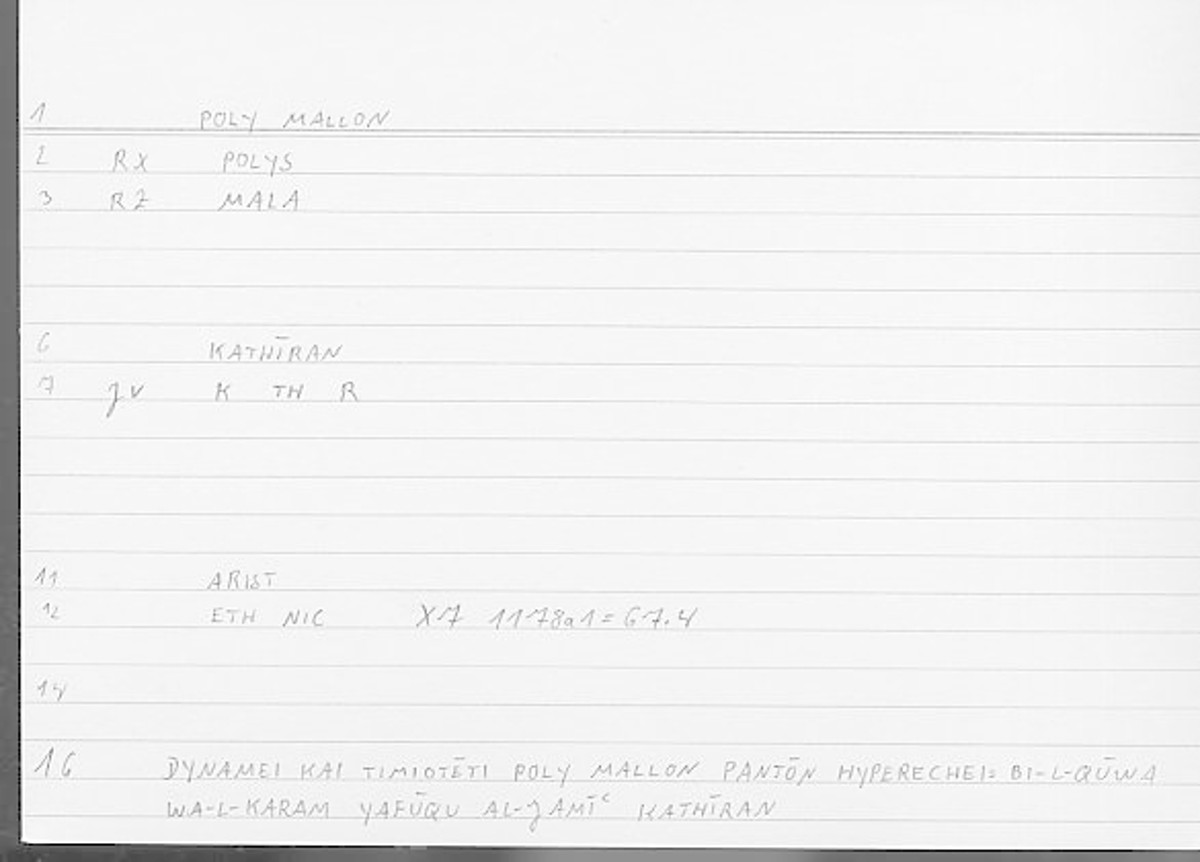 1 POLY MALLON
2 RX POLYS
3 RZ MALA
6 KATHĪRAN
7 JV K TH R
11 ARIST
12 ETH NIC X7 1178a1=67.4
14
16 DYNAMEI KAI TIMIOTĒTI POLY MALLON PANTŌN HYPERECHEI: BI-L-QŪWA
WA-L-KARAM YAFŪQU AL-JAMĪʿ KATHĪRAN